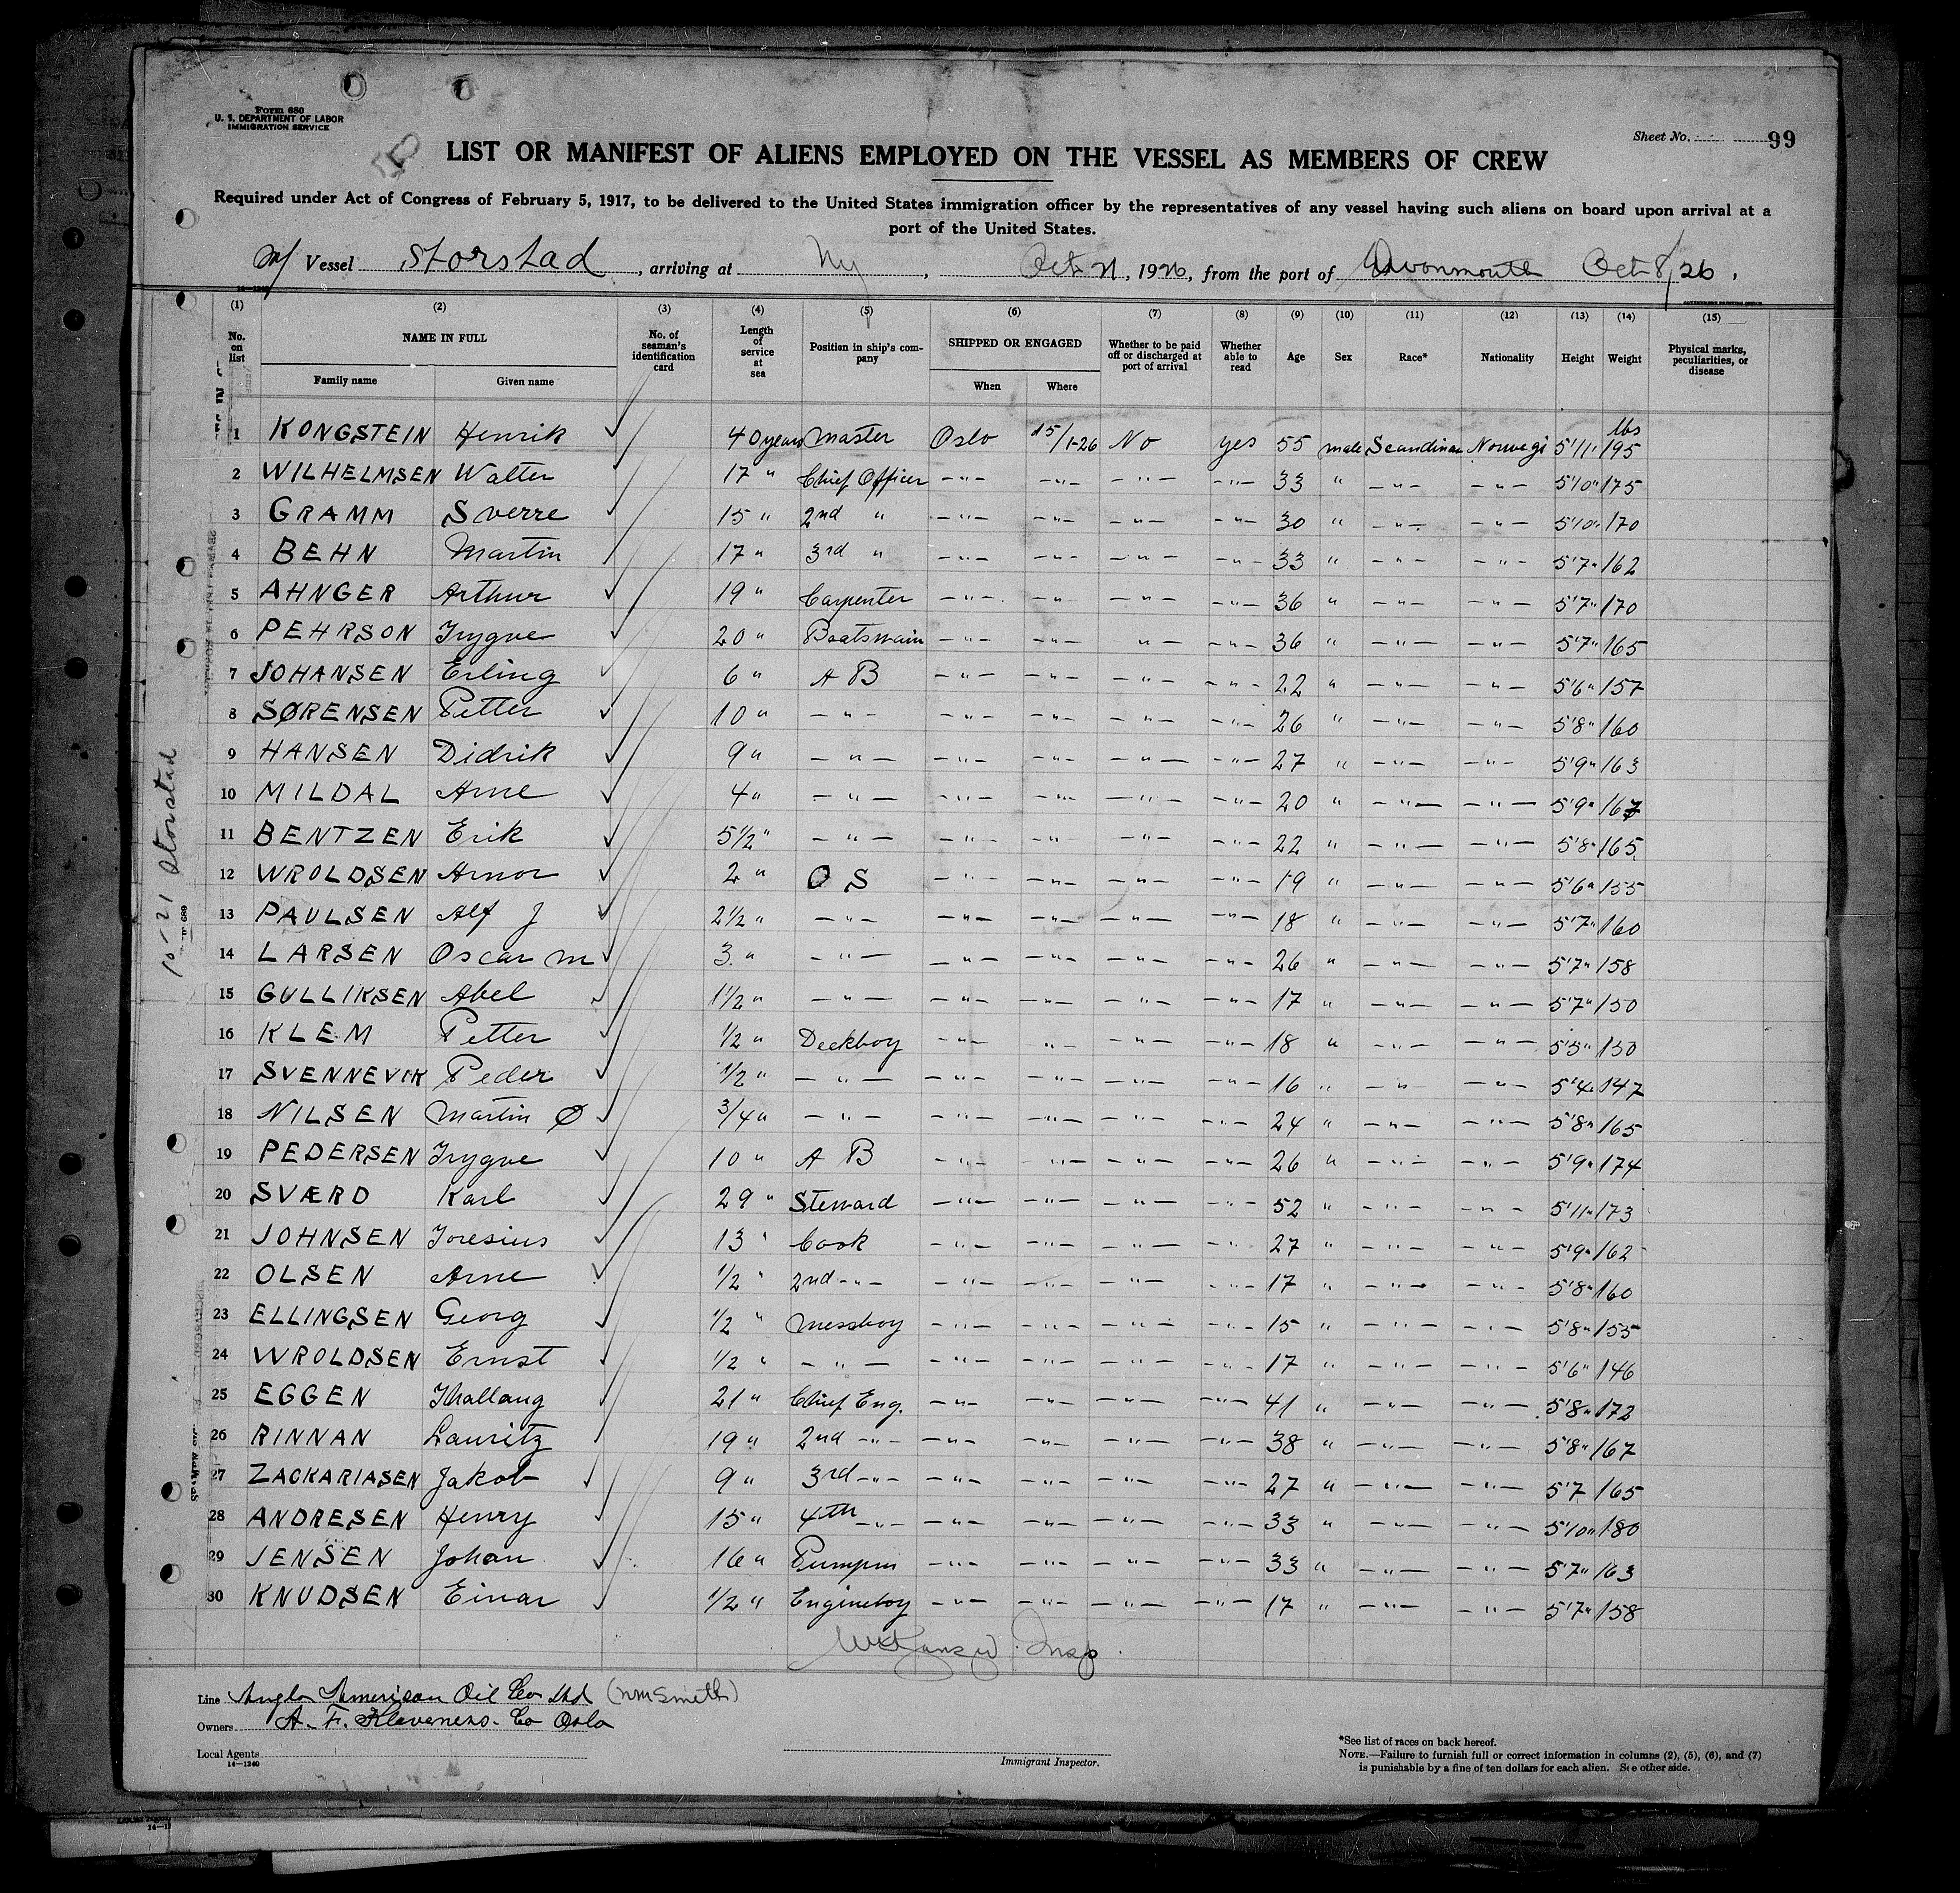 Form 680
U. S. DEPARTMENT OF LABOR
IMMIGRATION SERVICE
Sheet No. 99
LIST OR MANIFEST OF ALIENS EMPLOYED ON THE VESSEL AS MEMBERS OF CREW
Required under Act of Congress of February 5, 1917, to be delivered to the United States immigration officer by the representatives of any vessel having such aliens on board upon arrival at a
port of the United States.
M/ Vessel Storstad, arriving at Ny, Oct 21, 1926, from the port of Avonmouth Oct 8/26.
(1) (2) (3) (4) (5) (6) (7) (8) (9) (10) (11) (12) (13) (14) (15)
No. on list NAME IN FULL Family name Given name No. of seaman's identification card Length of service at sea Position in ship's company SHIPPED OR ENGAGED When Where Whether to be paid off or discharged at port of arrival Whether able to read Age Sex Race* Nationality Height Weight Physical marks, peculiarities, or disease
lbs
1 KONGSTEIN Henrik 40 years Master Oslo 15/1-26 No yes 55 male Scandinav Norwegi 5'11" 195
2 WILHELMSEN Walter 17 " Chief Officer -"- -"- -"- -"- 33 " -"- -"- 5'10" 175
3 GRAMM Sverre 15 " 2nd " -"- -"- -"- -"- 30 " -"- -"- 5'10" 170
4 BEHN Martin 17 " 3rd " -"- -"- -"- -"- 33 " -"- -"- 5'7" 162
5 AHNGER Arthur 19 " Carpenter -"- -"- -"- -"- 36 " -"- -"- 5'7" 170
6 PEHRSON Trygve 20 " Boatswain -"- -"- " -"- 36 " -"- -"- 5'7" 165
7 JOHANSEN Erling 6 " A B -"- -"- -"- -"- 22 " -"- -"- 5'6" 157
8 SØRENSEN Petter 10 " -"- -"- -"- -"- -"- 26 " -"- -"- 5'8" 160
9 HANSEN Didrik 9 " -"- -"- -"- -"- -"- 27 " -"- -"- 5'9" 163
10 MILDAL Arne 4 " -"- -"- -"- -"- -"- 20 " -"- -"- 5'9" 167
11 BENTZEN Erik 5 1/2 " -"- -"- -"- -"- -"- 22 " -"- -"- 5'8" 165
12 WROLDSEN Arnor 2 " O S -"- -"- -"- -"- 19 " -"- -"- 5'6" 155
13 PAULSEN Alf J 2 1/2 " -"- -"- -"- -"- -"- 18 " -"- -"- 5'7" 160
14 LARSEN Oscar M 3 " -"- -"- -"- -"- -"- 26 " -"- -"- 5'7" 158
15 GULLIKSEN Abel 1 1/2 " -"- -"- -"- -"- -"- 17 " -"- -"- 5'7" 150
16 KLEM Petter 1/2 " Deckboy -"- " -"- -"- 18 " -"- -"- 5'5" 150
17 SVENNEVIK Peder 1/2 " -"- -"- -"- -"- -"- 16 " -"- -"- 5'4" 147
18 NILSEN Martin Ø 3/4 " -"- -"- -"- -"- -"- 24 " -"- -"- 5'8" 165
19 PEDERSEN Trygve 10 " A B -"- -"- -"- -"- 26 " -"- -"- 5'9" 174
20 SVÆRD Karl 29 " Steward -"- -"- -"- -"- 52 " -"- -"- 5'11" 173
21 JOHNSEN 13 " Cook -"- -"- -"- -"- 27 " -"- -"- 5'9" 162
22 OLSEN Arne 1/2 " 2nd -"- -"- -"- -"- -"- 17 " -"- -"- 5'8" 160
23 ELLINGSEN Georg 1/2 " Messboy -"- -"- -"- -"- 15 " -"- -"- 5'8" 155
24 WROLDSEN Ernst 1/2 " -"- -"- -"- -"- -"- 17 " -"- -"- 5'6" 146
25 EGGEN 21 " Chief Eng. -"- -"- -"- -"- 41 " -"- -"- 5'8" 172
26 RINNAN Lauritz 19 " 2nd -"- -"- -"- -"- -"- 38 " -"- -"- 5'8" 167
27 ZACKARIASEN Jakob 9 " 3rd -"- -"- -"- -"- -"- 27 " -"- -"- 5'7 165
28 ANDRESEN Henry 15 " 4th -"- -"- -"- -"- -"- 33 " -"- -"- 5'10" 180
29 JENSEN Johan 16 " Pumpm -"- -"- -"- -"- 33 " -"- -"- 5'7" 163
30 KNUDSEN Einar 1/2 " Engineboy -"- -"- -"- -"- 17 " -"- -"- 5'7" 158
Insp.
Line Anglo American Oil Co Ltd (Wm Smith)
Owners A. F. Klaveness. Co Oslo
Local Agents
14—1240
Immigrant Inspector.
*See list of races on back hereof.
NOTE.—Failure to furnish full or correct information in columns (2), (5), (6), and (7)
is punishable by a fine of ten dollars for each alien. See other side.
10-21 Storstad
689